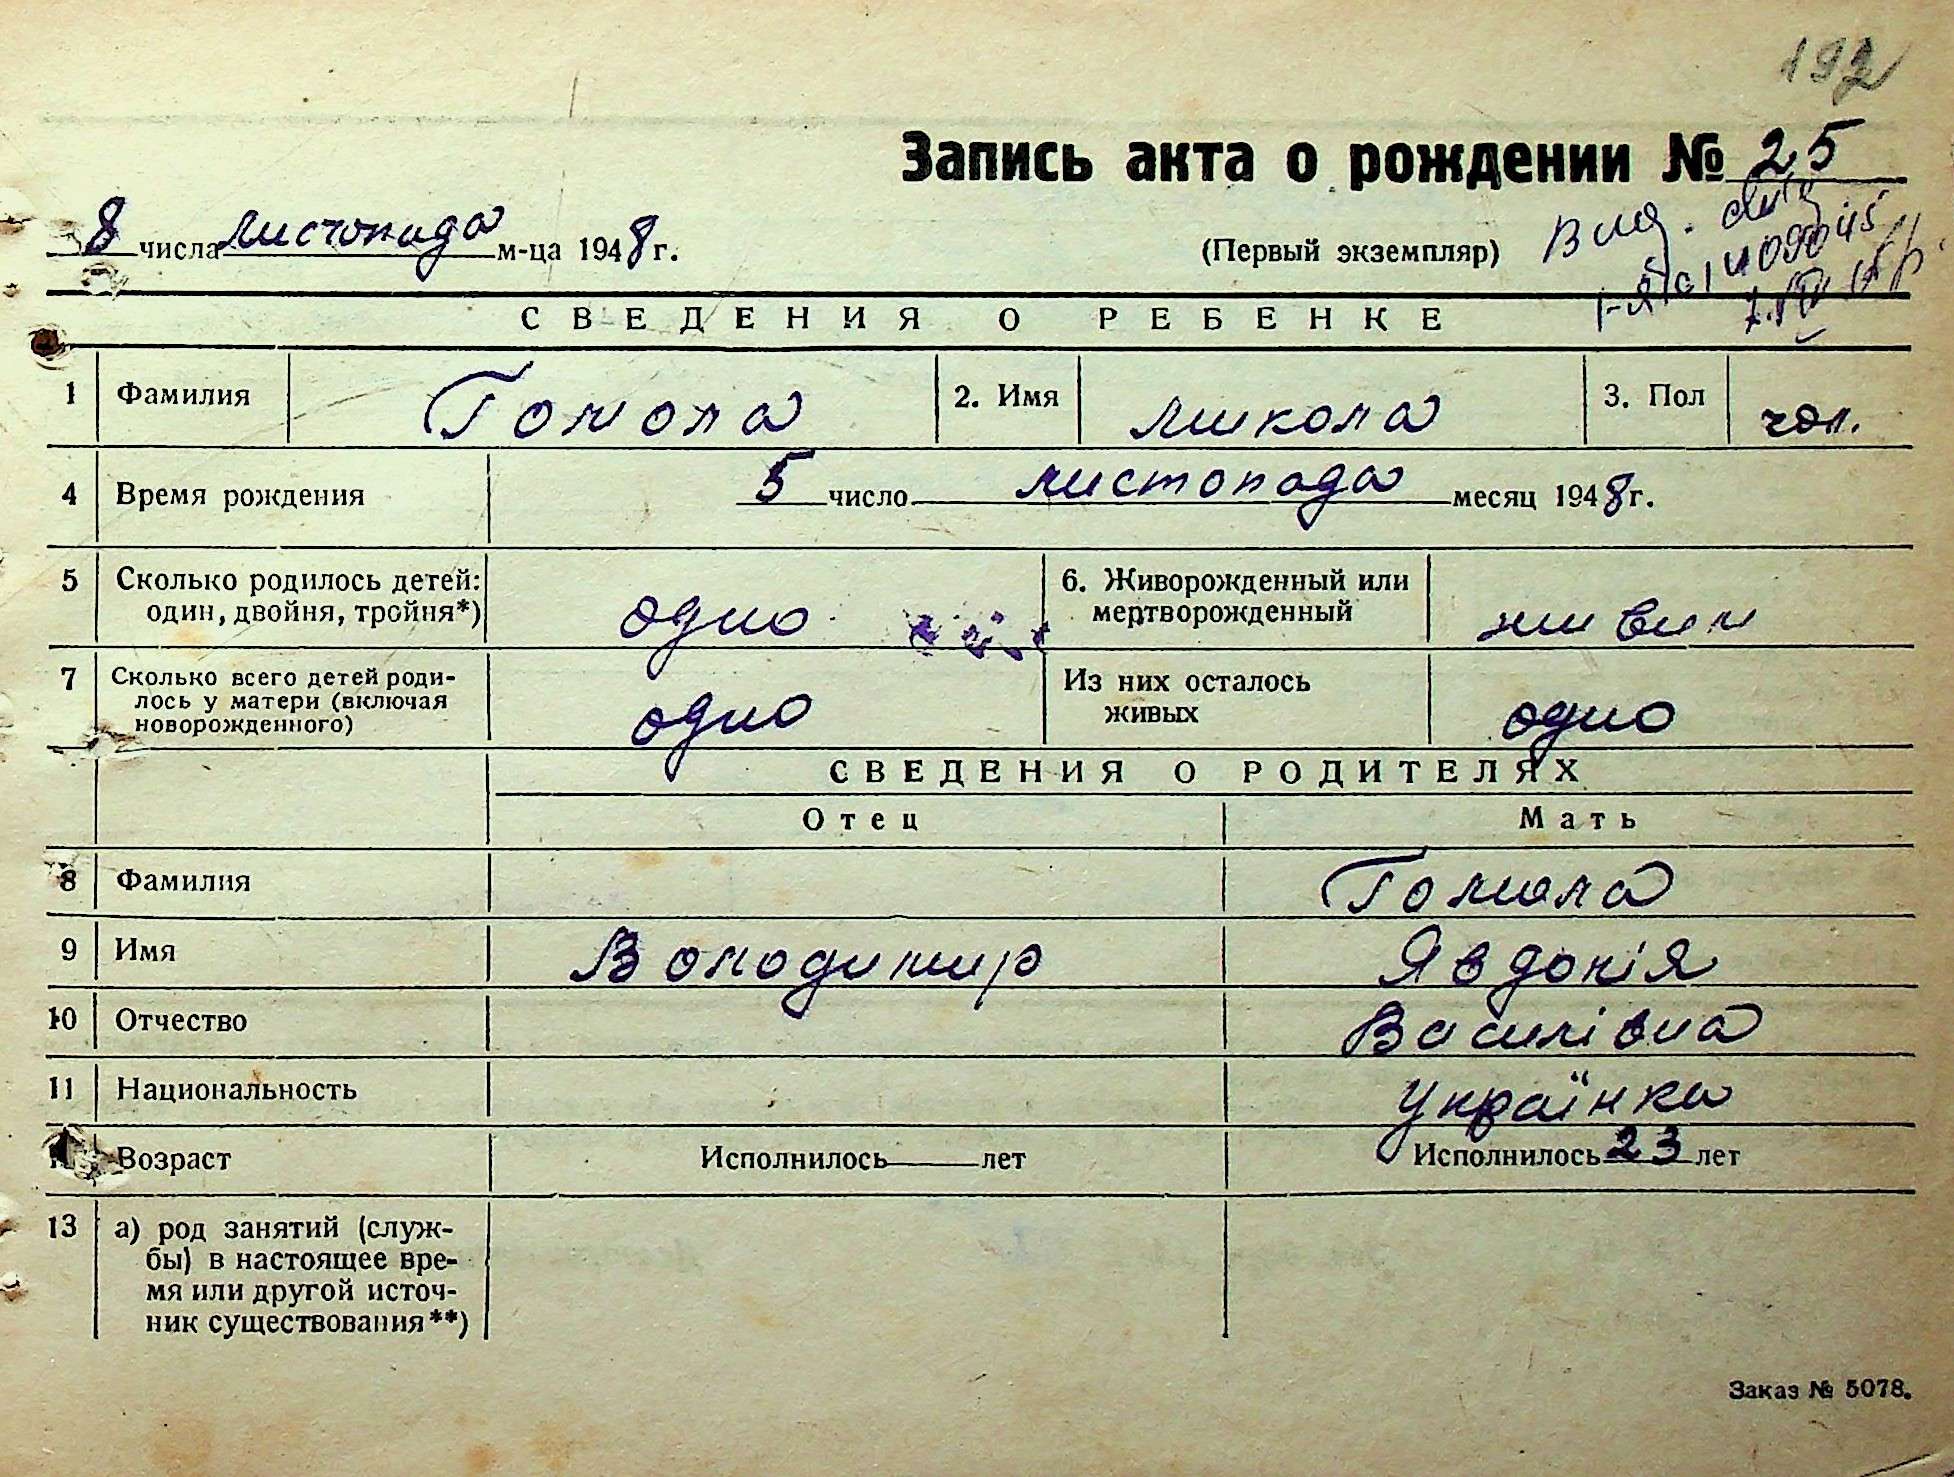 192
Запись акта о рождении № 25
8 числа листопада м-ца 1948 г.
(Первый экземпляр)
Вид.
СВЕДЕНИЯ О РЕБЕНКЕ
1 Фамилия Гомола 2. Имя Микола 3. Пол чол.
4 Время рождения 5 число листопада месяц 1948 г.
5 Сколько родилось детей: один, двойня, тройня*) одно 6. Живорожденный или мертворожденный живим
7 Сколько всего детей родилось у матери (включая новорожденного) одно Из них осталось живых одно
СВЕДЕНИЯ О РОДИТЕЛЯХ
Отец Мать
8 Фамилия Гомола
9 Имя Володимир Явдокія
10 Отчество Василівна
11 Национальность Українка
Возраст Исполнилось лет Исполнилось 23 лет
13 а) род занятий (служ-
бы) в настоящее вре-
мя или другой источ-
ник существования**)
Заказ № 5078.